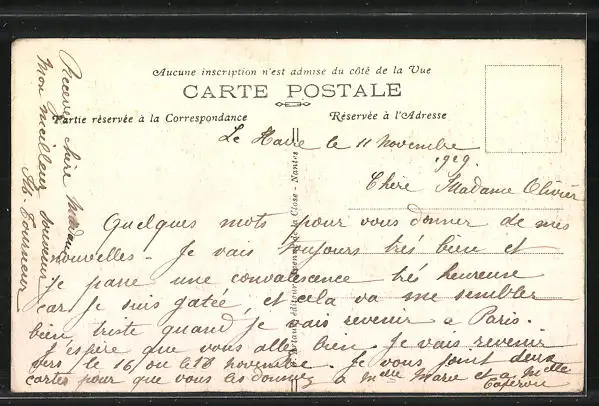 Aucune inscription n'est admise du côté de la Vue
CARTE POSTALE
Partie réservée à la Correspondance
Réservée à l'Adresse
Le Havre le 11 novembre
1929.
Chère Madame Olivier
Quelques mots pour vous donner de mes
nouvelles - Je vais toujours très bien et
je passe une convalescence très heureuse
car je suis gatée, et cela va me sembler
bien triste quand je vais revenir a Paris.
J'espère que vous allez bien. Je vais revenir
vers le 16 ou le 18 novembre. Je vous joint deux
cartes pour que vous les donniez a Melle Marie et a Melle
Recevez chère Madame
Mon meilleur souvenir
éditeur
de la Close - Nantes